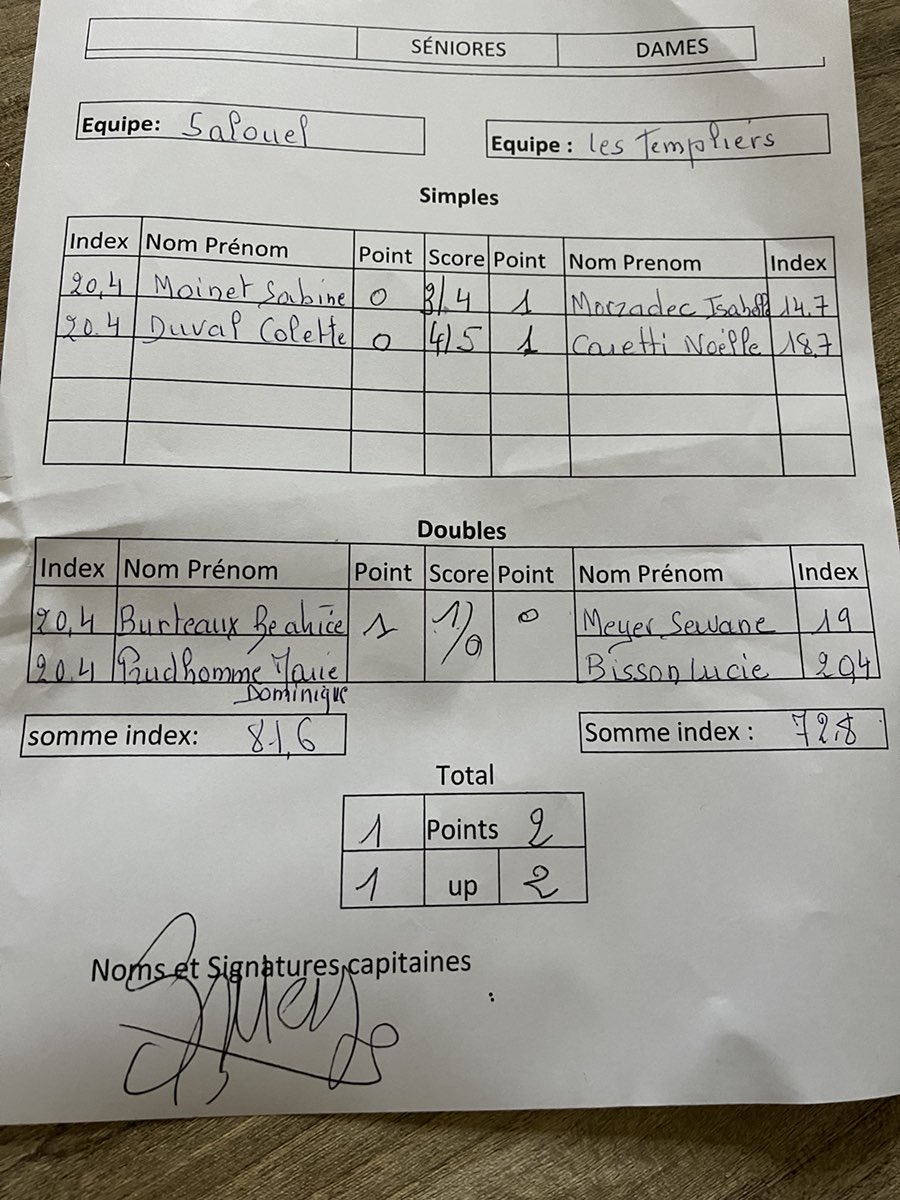 SÉNIORES DAMES
Equipe: Salouel Equipe : les Templiers
Simples
Index Nom Prénom Point Score Point Nom Prenom Index
20,4 Moinet Sabine 0 3/4 1 Morzadec Isabelle 14.7
20.4 Duval Colette 0 4/5 1 Caretti Noëlle 18,7
Doubles
Index Nom Prénom Point Score Point Nom Prénom Index
20,4 Burteaux Béatrice 1 1/0 0 Meyer Sewane 19
20.4 Prudhomme Marie Bisson Lucie 20,4
Dominique
somme index: 81,6 Somme index : 72,8
Total
1 Points 2
1 up 2
Noms et Signatures capitaines
: